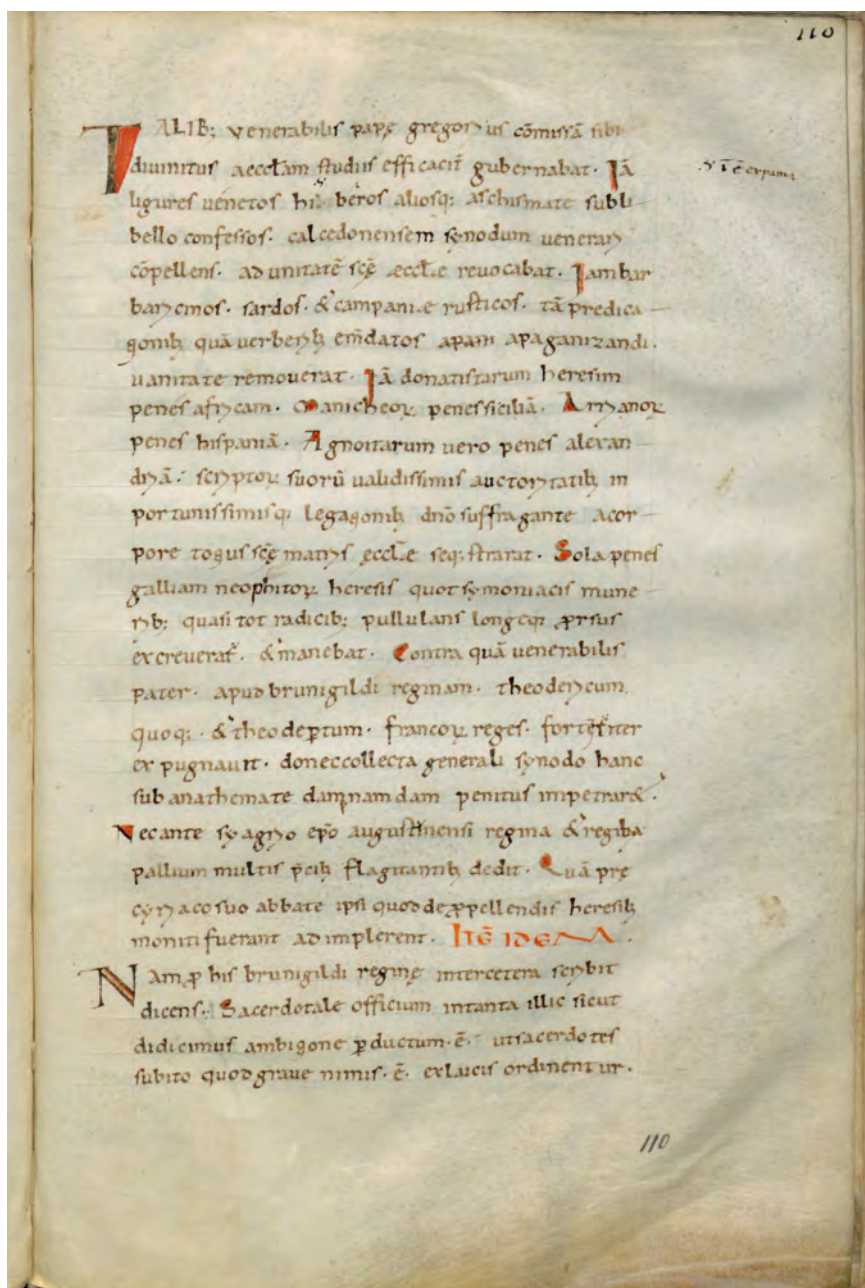 110
TALIB; venerabilis papę gregorius cōmissā sibi
diuinitus aecclam studiis efficacit gubernabat. Iā
ligures uenetos hiberos aliosq; aschismate subli
bello confessos. calcedonensem synodum venerari
cōpellens. ad unitatē scę aeccle revocabat. Iambar
baricinos. sardos. & campanie rusticos. tā predica
tionib; quā uerberib; em̄datos apam apaganizandi.
uanitate remouerat. Iā donatistarum heresim
penes africam. Manicheoꝝ penes siciliā. Arrianoꝝ
penes hispaniā. Agnoitarum uero penes alexan
driā. scriptoꝝ suorū validissimis auctoritatib; in
portunissimisq; legationib; dn̄o suffragante acor
pore totius scę matris ęccle seq;strarat. Sola penes
galliam neophitoꝝ heresis quot symoniacis mune
rib; quasi tot radicib; pullulans longeq; ꝓrsus
excreuerat. & manebat. Contra quā venerabilis
pater. apud brunigildi reginam. theodericum
quoq;. & theodeꝑtum. francoꝝ reges. fortiter
expugnauit. donec collecta generali synodo hanc
sub anathemate damnamdam penitus impetrar&.
Necante syagrio epō augustinensi regina & regiba
pallium multis p̄cib; flagitantib; dedit. Quā pre
cyriaco suo abbate ipsi quod de ꝓpellendis heresib;
moniti fuerant adimplerent. ITĒ IDEM.
Nam ꝓ his brunigildi reginę intercetera scribit
dicens. Sacerdotale officium intanta illic sicut
didicimus ambitione ꝑductum. ē. ut sacerdotes
subito quod graue nimis. ē. exlaicis ordinentur.
110